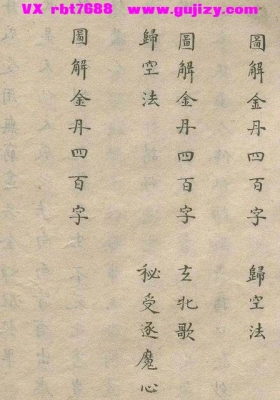 VX rbt7688 www.gujizy.com
圖解金丹四百字 歸空法
圖解金丹四百字 玄牝歌
歸空法 秘受逐魔心
圖解金丹四百字